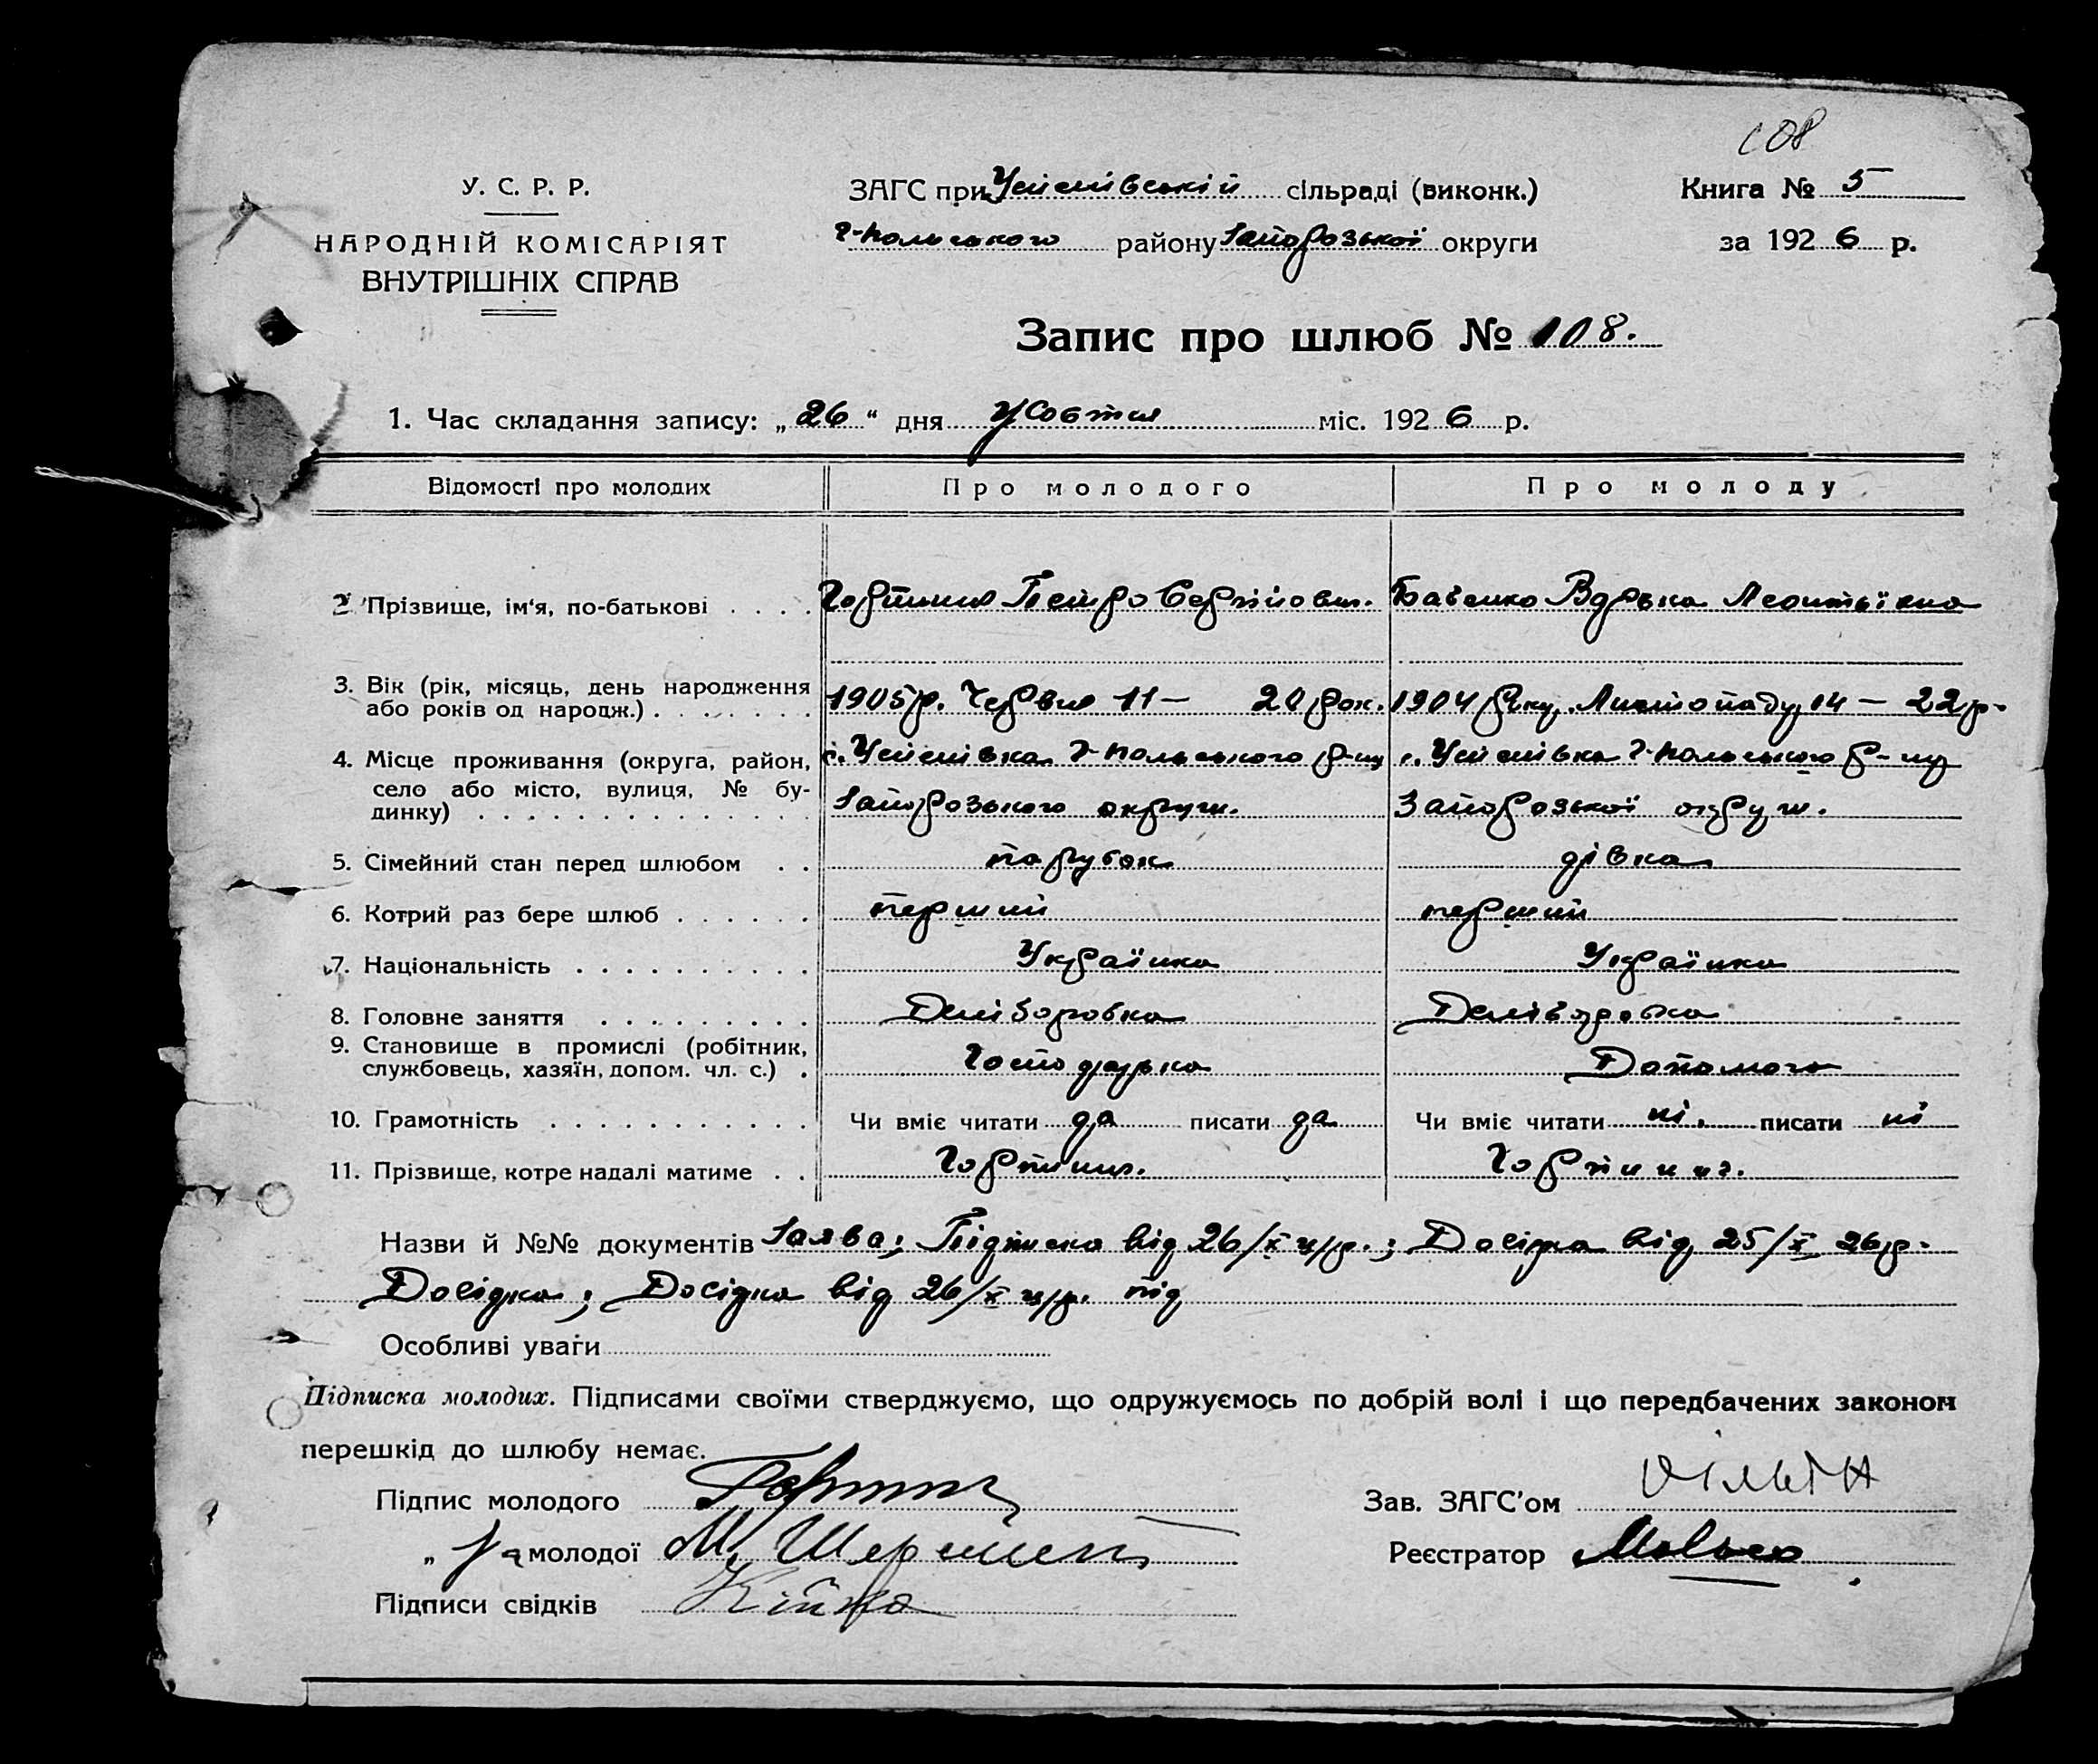 108
У. С. Р. Р.
НАРОДНІЙ КОМІСАРІЯТ
ВНУТРІШНІХ СПРАВ
ЗАГС при Успенівській сільраді (виконк.)
Г-Польського району Запорозької округи
Книга № 5
за 1926 р.
Запис про шлюб № 108.
1. Час складання запису: „26“ дня Жовтня міс. 1926 р.
Відомості про молодих Про молодого Про молоду
2 Прізвище, ім'я, по-батькові . . . . Гортиня Петро Бавенко Леонтьївна
3. Вік (рік, місяць, день народження 1905 р. Червня 11 — 1904 року Листопаду 14 — 22 р.
або років од народж.) . . . . . . .
4. Місце проживання (округа, район, с. Успенівка Г-Польського р-ну с. Успенівка Г-Польського р-ну
село або місто, вулиця, № бу- Запорозького округи. Запорозької округи.
динку) . . . . . . . . . . . . . .
5. Сімейний стан перед шлюбом . . парубок дівка
6. Котрий раз бере шлюб . . . . . . перший перший
7. Національність . . . . . . . . . . Українка Українка
8. Головне заняття . . . . . . . . .
9. Становище в промислі (робітник, Господарька Допомога
службовець, хазяїн, допом. чл. с.) .
10. Грамотність . . . . . . . . . . . Чи вміє читати да писати да Чи вміє читати ні. писати ні
11. Прізвище, котре надалі матиме . . Гортиня. Гортиння.
Назви й №№ документів Заява; Підписка від 26/X ц/р.; Досідка від 25/X 26 р.
Досідка; Досідка від 26/X ц/р. під
Особливі уваги
Підписка молодих. Підписами своїми стверджуємо, що одружуємось по добрій волі і що передбачених законом
перешкід до шлюбу немає.
Підпис молодого
Зав. ЗАГС'ом
„ за молодої М.
Реєстратор
Підписи свідків